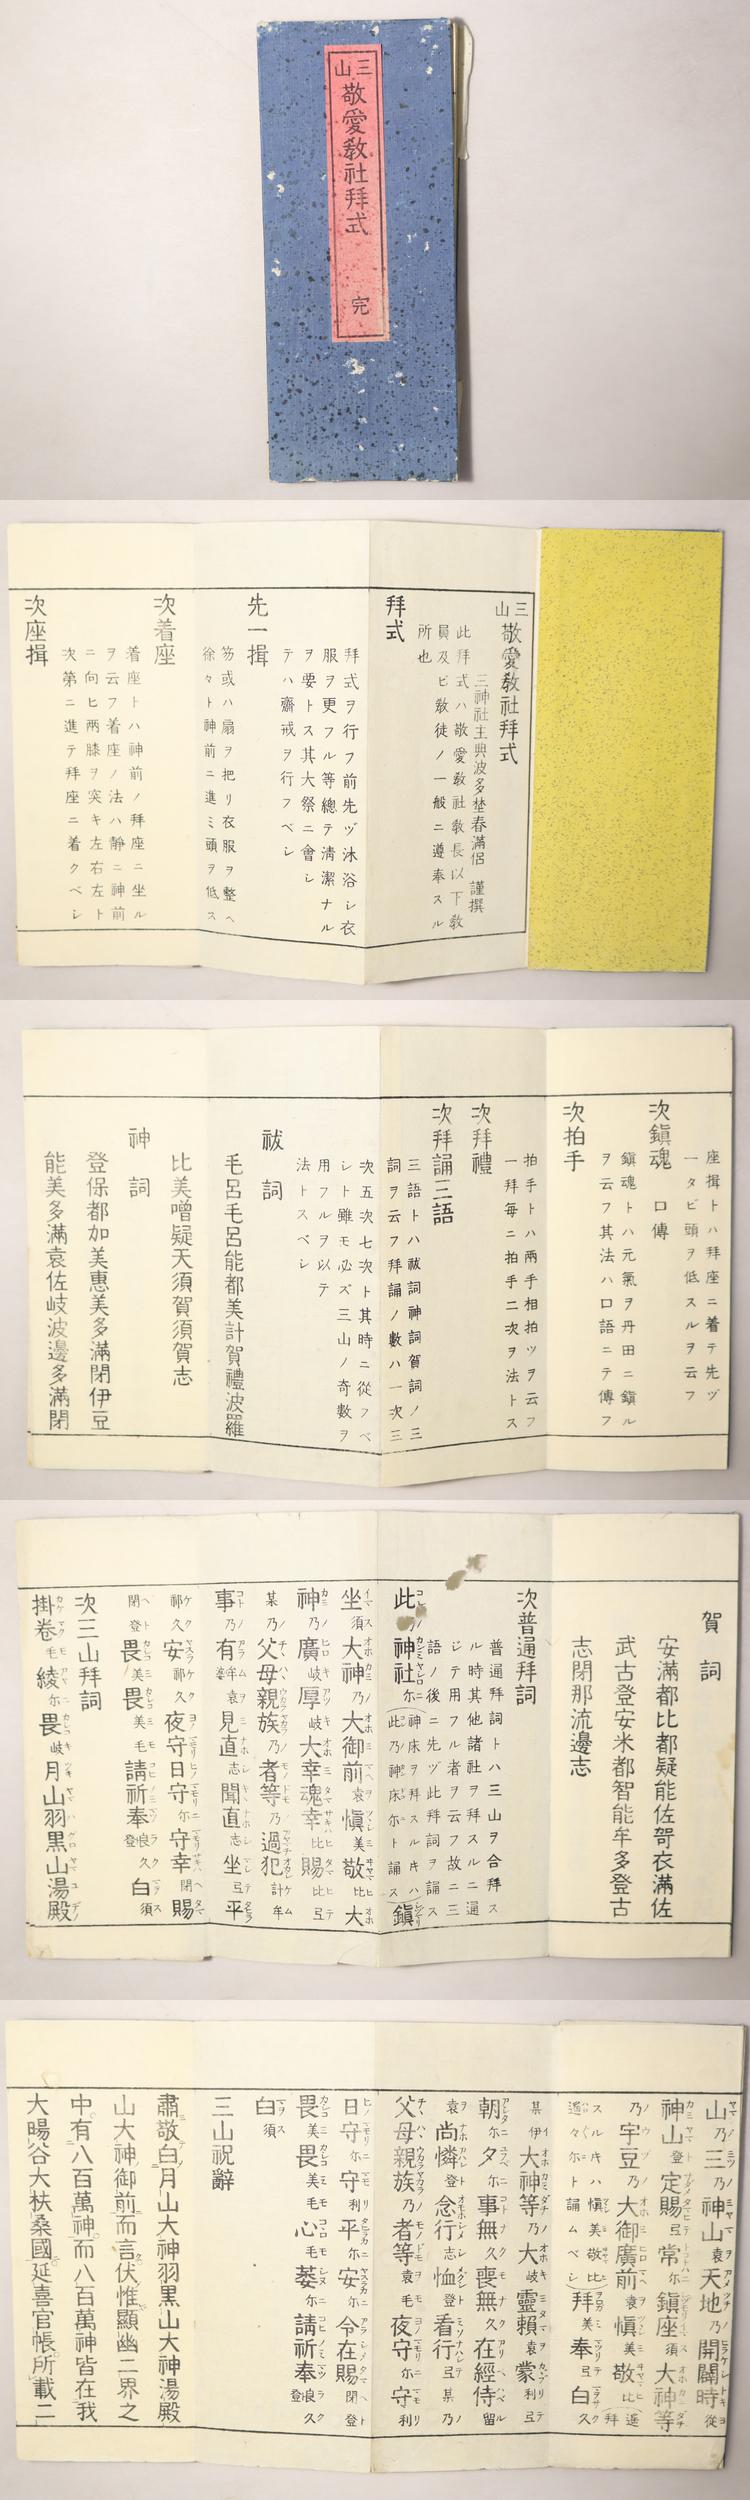 三山敬愛教社拜式　完
三山敬愛教社拜式
三神社主典波多埜春滿侶　謹撰
此拜式ハ敬愛教社教長以下教
員及ビ教徒ノ一般ニ遵奉スル
所也
拜式
拜式ヲ行フ前先ヅ沐浴シ衣
服ヲ更フル等總テ清潔ナル
ヲ要トス其大祭ニ會シ
テハ齋戒ヲ行フベシ
先一揖
笏或ハ扇ヲ把リ衣服ヲ整ヘ
徐々ト神前ニ進ミ頭ヲ低ス
次着座
着座トハ神前ノ拜座ニ坐ル
ヲ云フ着座ノ法ハ靜ニ神前
ニ向ヒ兩膝ヲ突キ左右左ト
次第ニ進テ拜座ニ着クベシ
次座揖
座揖トハ拜座ニ着テ先ヅ
一タビ頭ヲ低スルヲ云フ
次鎭魂　口傳
鎭魂トハ元氣ヲ丹田ニ鎭ル
ヲ云フ其法ハ口語ニテ傳フ
次拍手
拍手トハ兩手相拍ツヲ云フ
一拜毎ニ拍手二次ヲ法トス
次拜禮
次拜誦三語
三語トハ祓詞神詞賀詞ノ三
詞ヲ云フ拜誦ノ數ハ一次三
次五次七次ト其時ニ從フベ
シト雖モ必ズ三山ノ奇數ヲ
用フルヲ以テ
法トスベシ
祓　詞
毛呂毛呂能都美計賀禮波羅
比美噌疑天須賀須賀志
神　詞
登保都加美惠美多滿閉伊豆
能美多滿袁佐岐波邊多滿閉
賀　詞
安滿都比都疑能佐哿衣滿佐
武古登安米都智能牟多登古
志閉那流邊志
次普通拜詞
普通拜詞トハ三山ヲ合拜ス
ル時其他諸社ヲ拜スルニ通
ジテ用フル者ヲ云フ故ニ三
語ノ後ニ先ヅ此拜詞ヲ誦ス
此乃神社尓(神床ヲ拜スルキハ此乃神床尓ト誦ス)鎭
坐須大神乃大御前袁愼美敬比大
神乃廣岐厚岐大幸魂幸比賜比弖
某乃父母親族乃者等乃過犯計牟
事乃有袁見直志聞直志坐弖平
祁久安祁久夜守日守尓守幸閉賜
閉登畏美畏美毛請祈奉良久白須
次三山拜詞
掛卷毛綾尓畏岐月山羽黒山湯殿
山乃三乃神山袁天地乃開闢時從
神山登定賜弖常尓鎭座須大神等
乃宇豆乃大御廣前袁愼美敬比(遙拜
スルキハ愼美敬比遙々尓ト誦ムベシ)拜美奉弖白久
某伊大神等乃大岐靈頼袁蒙利弖
朝尓夕尓事無久喪無久在經侍留
袁尚憐登念行志恤登看行弖某乃
父母親族乃者等袁毛夜守尓守利
日守尓守利平尓安尓令在賜閉登
畏美畏美毛心毛萎尓請祈奉良久登
白須
三山祝辭
肅敬白月山大神羽黒山大神湯殿
山大神御前而言伏惟顯幽二界之
中有八百萬神而八百萬神皆在我
大暘谷大扶桑國延喜官帳所載二